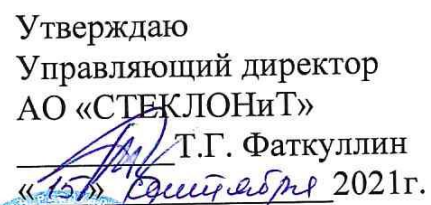 Утверждаю
Управляющий директор
АО «СТЕКЛОНиТ»
Т.Г. Фаткуллин
«15» сентября 2021г.